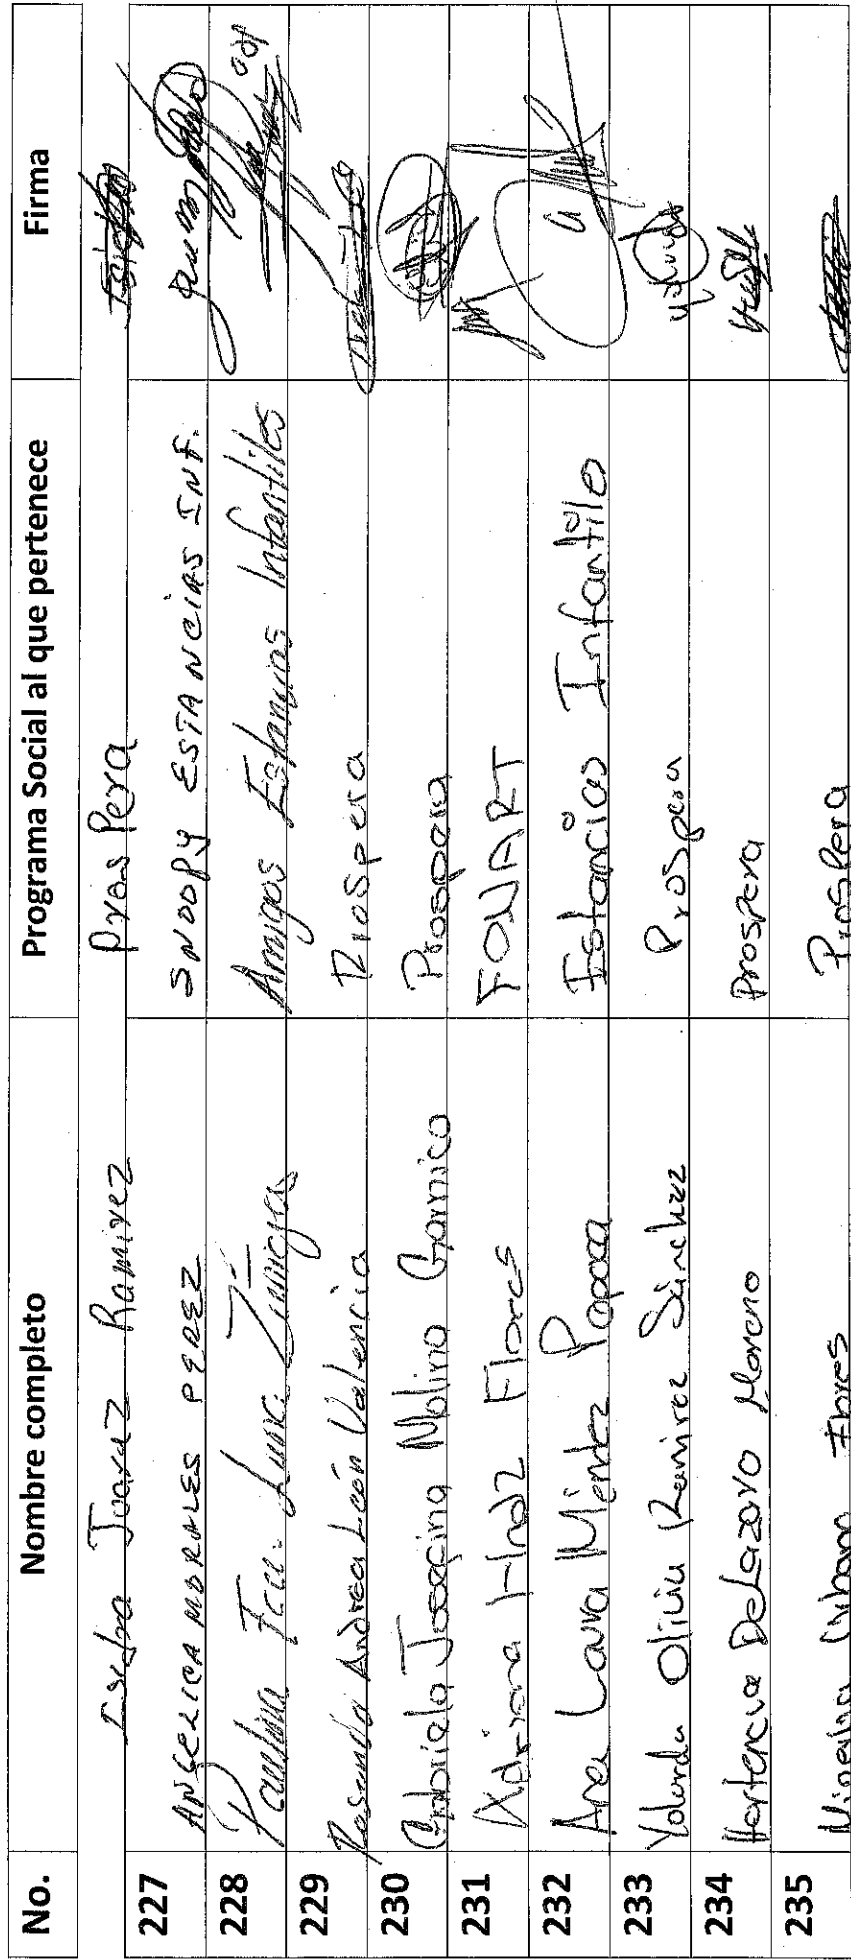 No. Nombre completo Programa Social al que pertenece Firma
Isidra Juarez Ramirez Prospera
227 ANGELICA MORALES PEREZ SNOOPY ESTANCIAS INF.
228 Paulina Luna Zuniga Amigos Estancias Infantiles
229 Rosanda Andrea León Valencia Prospera
230 Gabriela Josefina Molino Garnico Prospera
231 Adriana Hndz Flores FONART
232 Ana Laura Méndez Popoca Estancias Infantile
233 Yolanda Olivia Ramirez Sánchez Prospera Yolanda
234 Hortencia De Lazaro Moreno Prospera
235 Minerva Flores Prospera